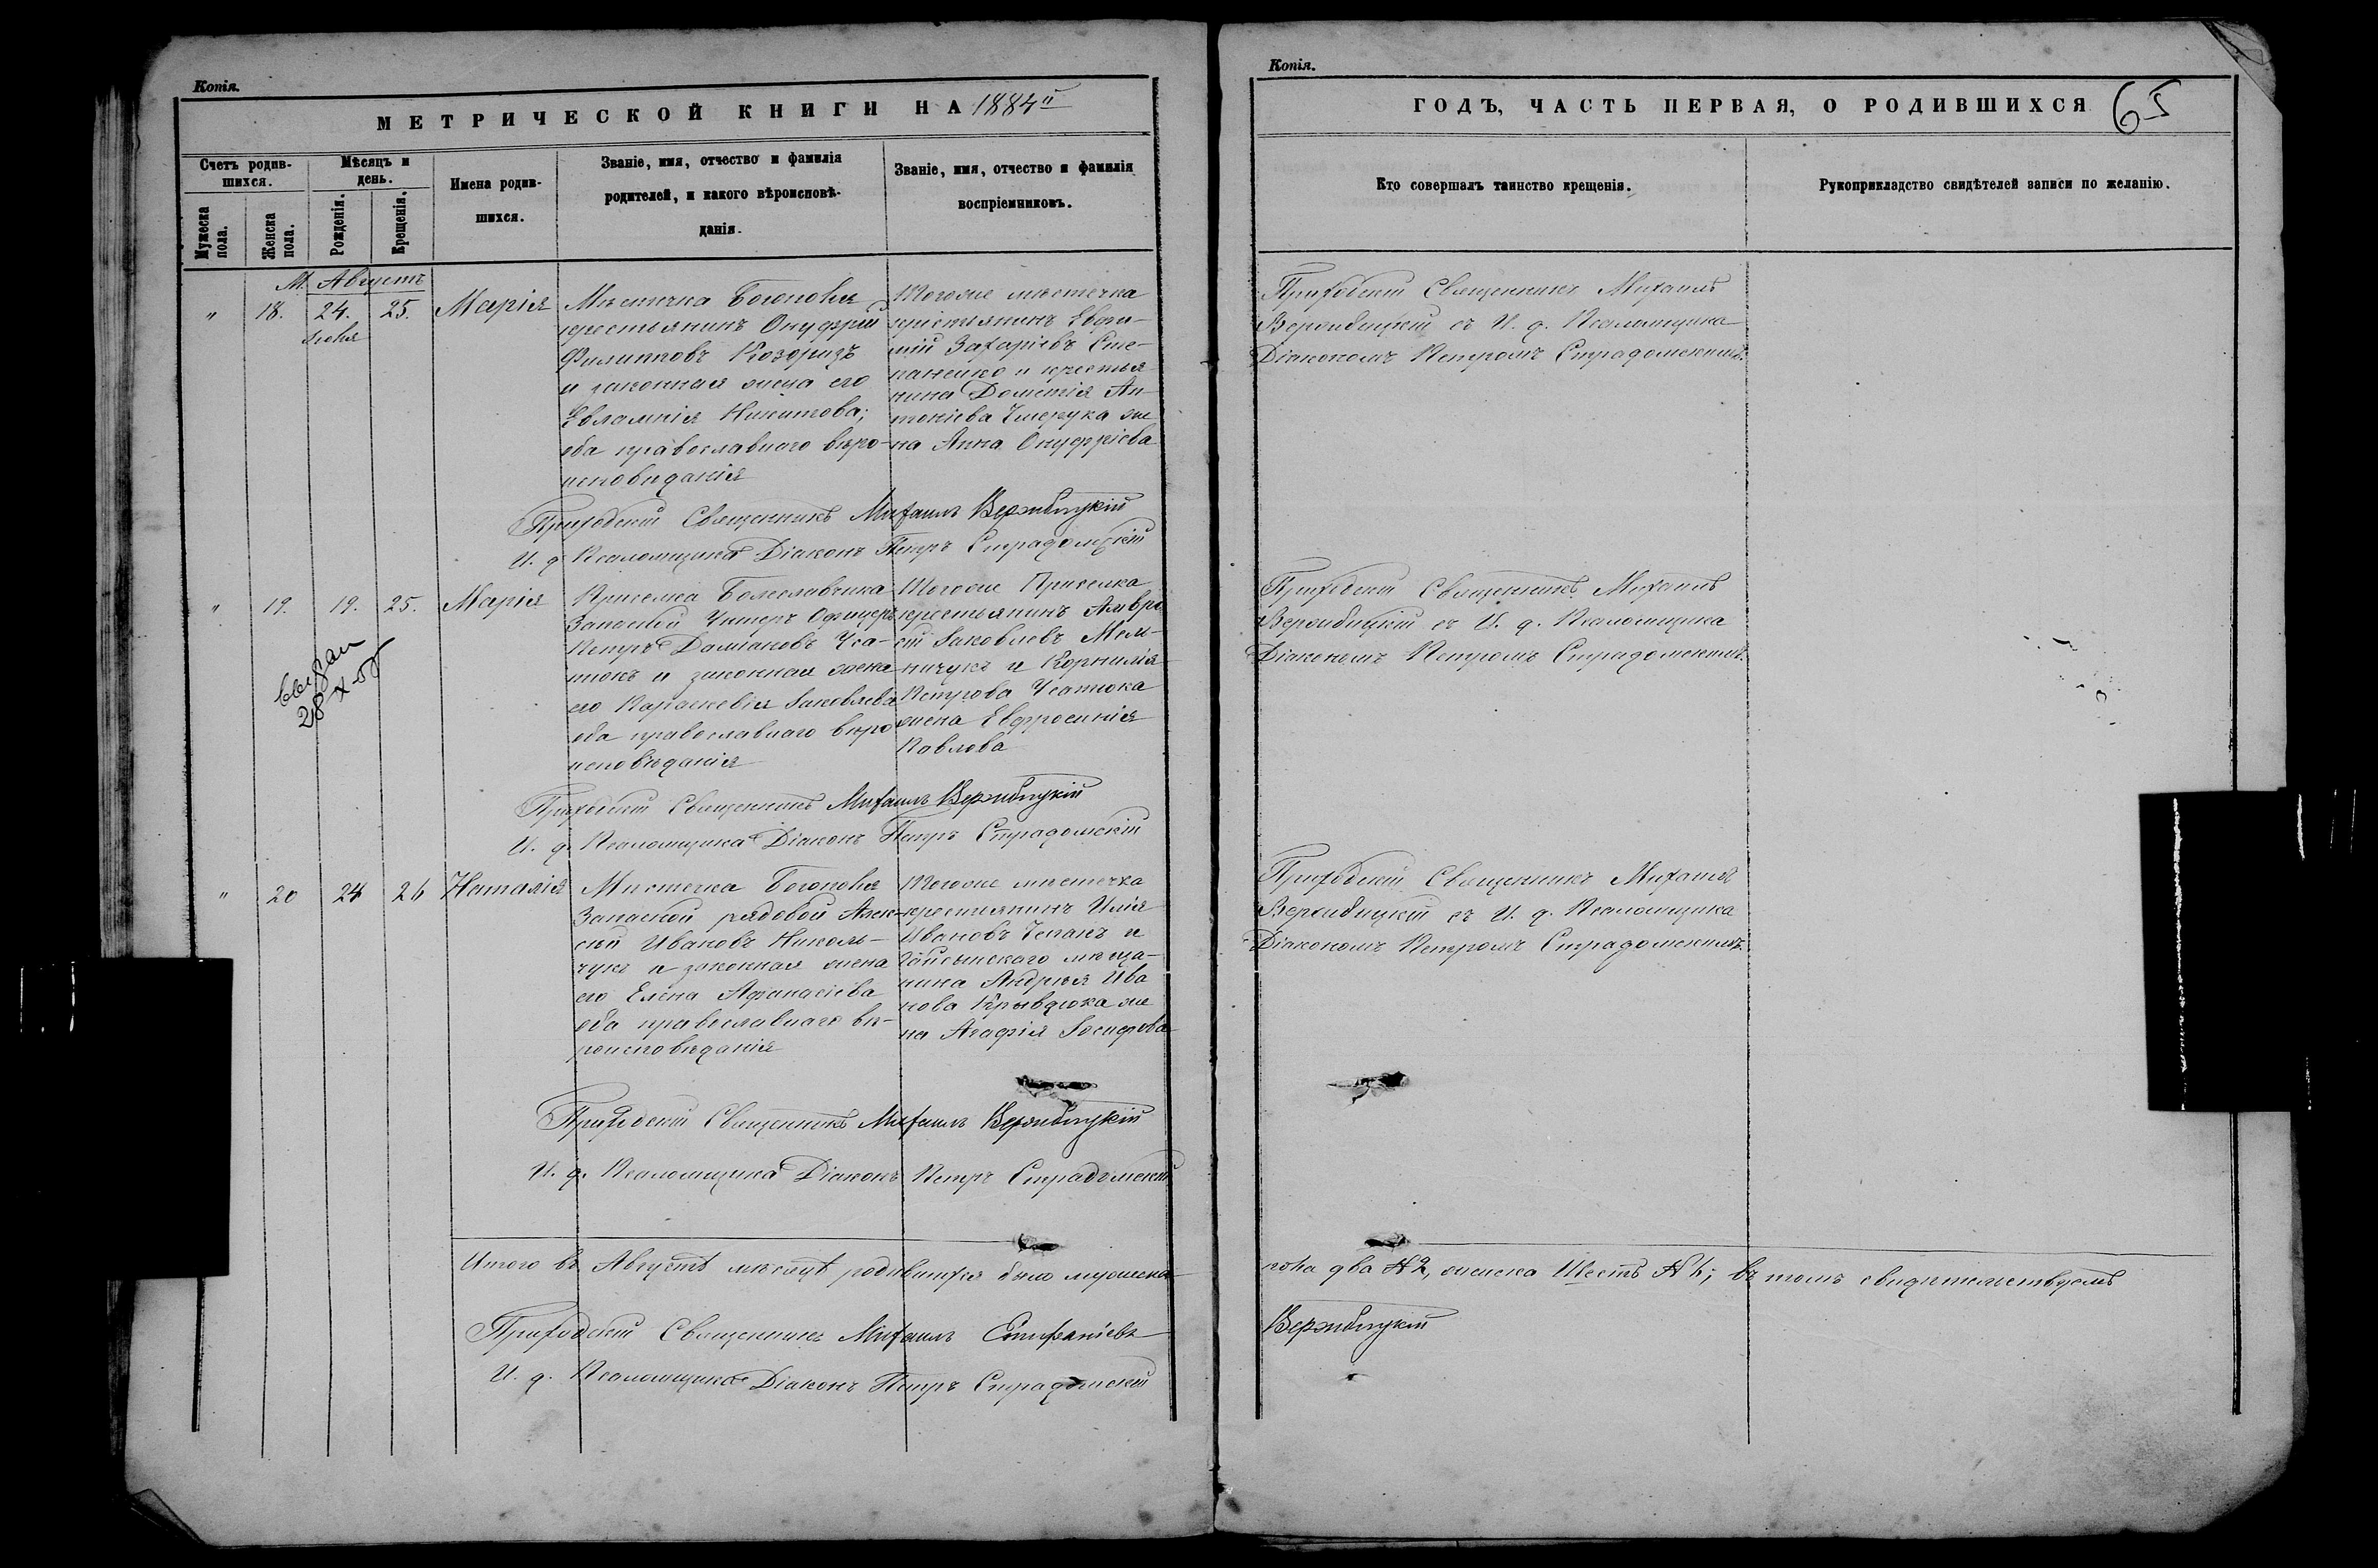 Копія.
МЕТРИЧЕСКОЙ КНИГИ НА 1884й
Счетъ родив-
шихся.
Мужеска
пола.
Женска
пола.
Мѣсяцъ и
день.
Рожденія.
Крещенія.
Имена родив-
шихся.
Званіе, имя, отчество и фамилія
родителей, и какого вѣроисповѣ-
данія.
Званіе, имя, отчество и фамилія
воспріемниковъ.
М. Августъ
" 18. 24. 25. Марія
Мѣстечка Богополя
крестьянинъ Онуфрій
Филипповъ Козоризъ
и законная жена его
Евлампія Никитова;
оба православнаго вѣро-
исповѣданія
Тогоже мѣстечка
крестьянинъ Евфи-
мій Захаріевъ Сте-
паненко и крестья
нина Дометія Ан-
тоніева же
на Анна Онуфріева
Приходскій Священникъ Михаилъ Вержбицкій
И. д. Псаломщика Діаконъ Петръ Страдомскій
" 19. 19. 25. Марія
Приселка Болеславчика
Запасной Унтеръ Офицеръ
Петръ Даміановъ Уса-
тюкъ и законная жена
его Параскевія Іаковлева
оба православнаго вѣро
исповѣданія
Тогоже Приселка
крестьянинъ Амвро
сій Іаковлевъ Мель-
ничукъ и Корнилія
Петрова Усатюка
жена Евфросинія
Павлова
выдан
28 X
Приходскій Священникъ Михаилъ Вержбицкій
И. д. Псаломщика Діаконъ Петръ Страдомскій
" 20 24 26 Наталія
Мѣстечка Богополя
Запасной рядовой Алек-
сій Ивановъ Николь-
чукъ и законная жена
его Елена Афанасіева
оба православнаго вѣ-
роисповѣданія
Тогоже мѣстечка
крестьянинъ Илія
Ивановъ и
Гайсынского мѣща-
нина Андрея Ива
нова Крывдюка же
на Агафія Іосифова
Приходскій Священникъ Михаилъ Вержбицкій
И. д. Псаломщика Діаконъ Петръ Страдомскій
Итого въ Августѣ мѣсяцѣ родившихся было мужеска
Приходскій Священникъ Михаилъ Епифаніевъ
И. д. Псаломщика Діаконъ Петръ Страдомскій
Копія.
ГОДЪ, ЧАСТЬ ПЕРВАЯ, О РОДИВШИХСЯ 65
Кто совершалъ таинство крещенія.
Рукоприкладство свидѣтелей записи по желанію.
Приходскій Священникъ Михаилъ
Вержбицкій съ И. д. Псаломщика
Діакономъ Петромъ Страдомскимъ.
Приходскій Священникъ Михаилъ
Вержбицкій съ И. д. Псаломщика
Діакономъ Петромъ Страдомскимъ.
Приходскій Священникъ Михаилъ
Вержбицкій съ И. д. Псаломщика
Діакономъ Петромъ Страдомскимъ.
пола два № 2, женска Шесть № 6; въ томъ свидѣтельствуемъ
Вержбицкій